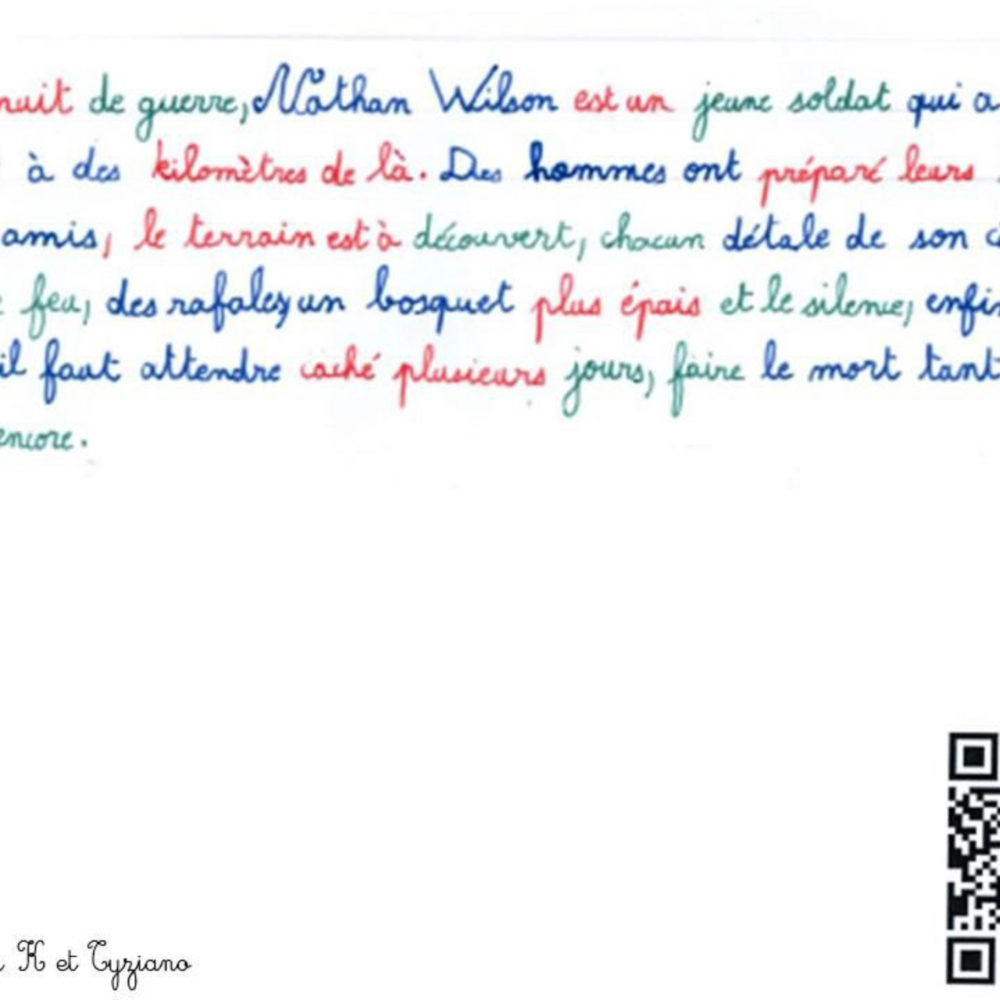 nuit de guerre, Nathan Wilson est un jeune soldat qui a
à des kilomètres de là. Des hommes ont préparé leurs
amis, le terrain est à découvert, chacun détale de son
feu, des rafales, un bosquet plus épais et le silence, enfin
il faut attendre caché plusieurs jours, faire le mort tant
encore.
K et Tyziano